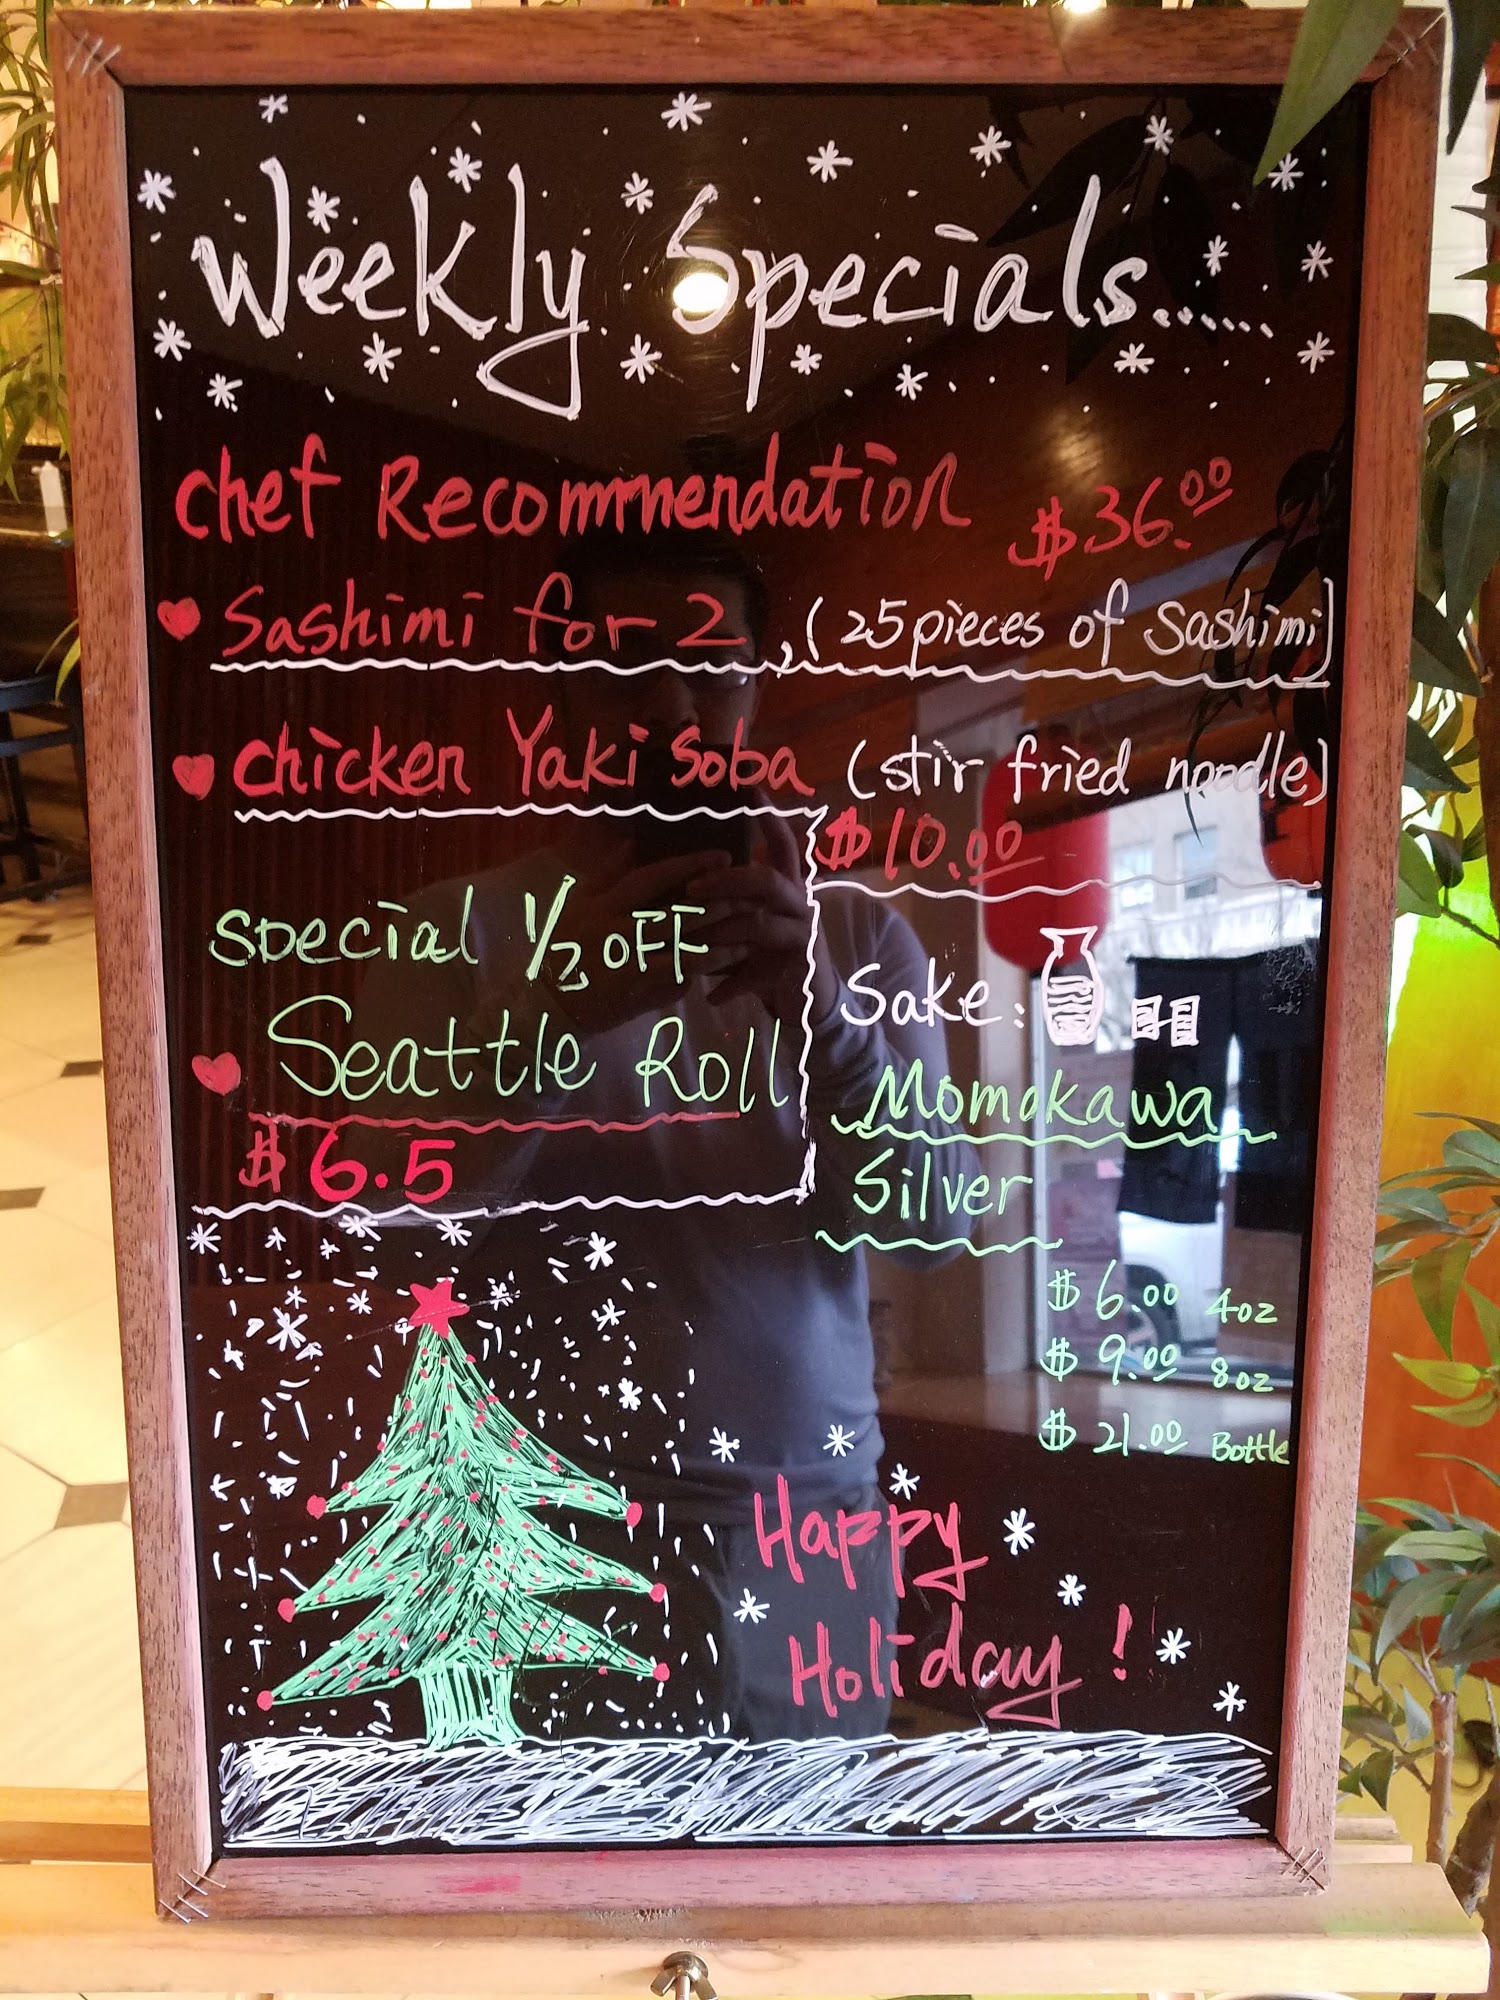 Weekly Specials......
Chef Recommendation $36.00
Sashimi for 2, (25 pieces of Sashimi)
Chicken Yaki Soba (stir fried noodle)
$10.00
Special 1/2 OFF
Seattle Roll
$6.5
Sake:
Momokawa
Silver
$6.00 4oz
$9.00 8oz
$21.00 Bottle
Happy
Holiday!